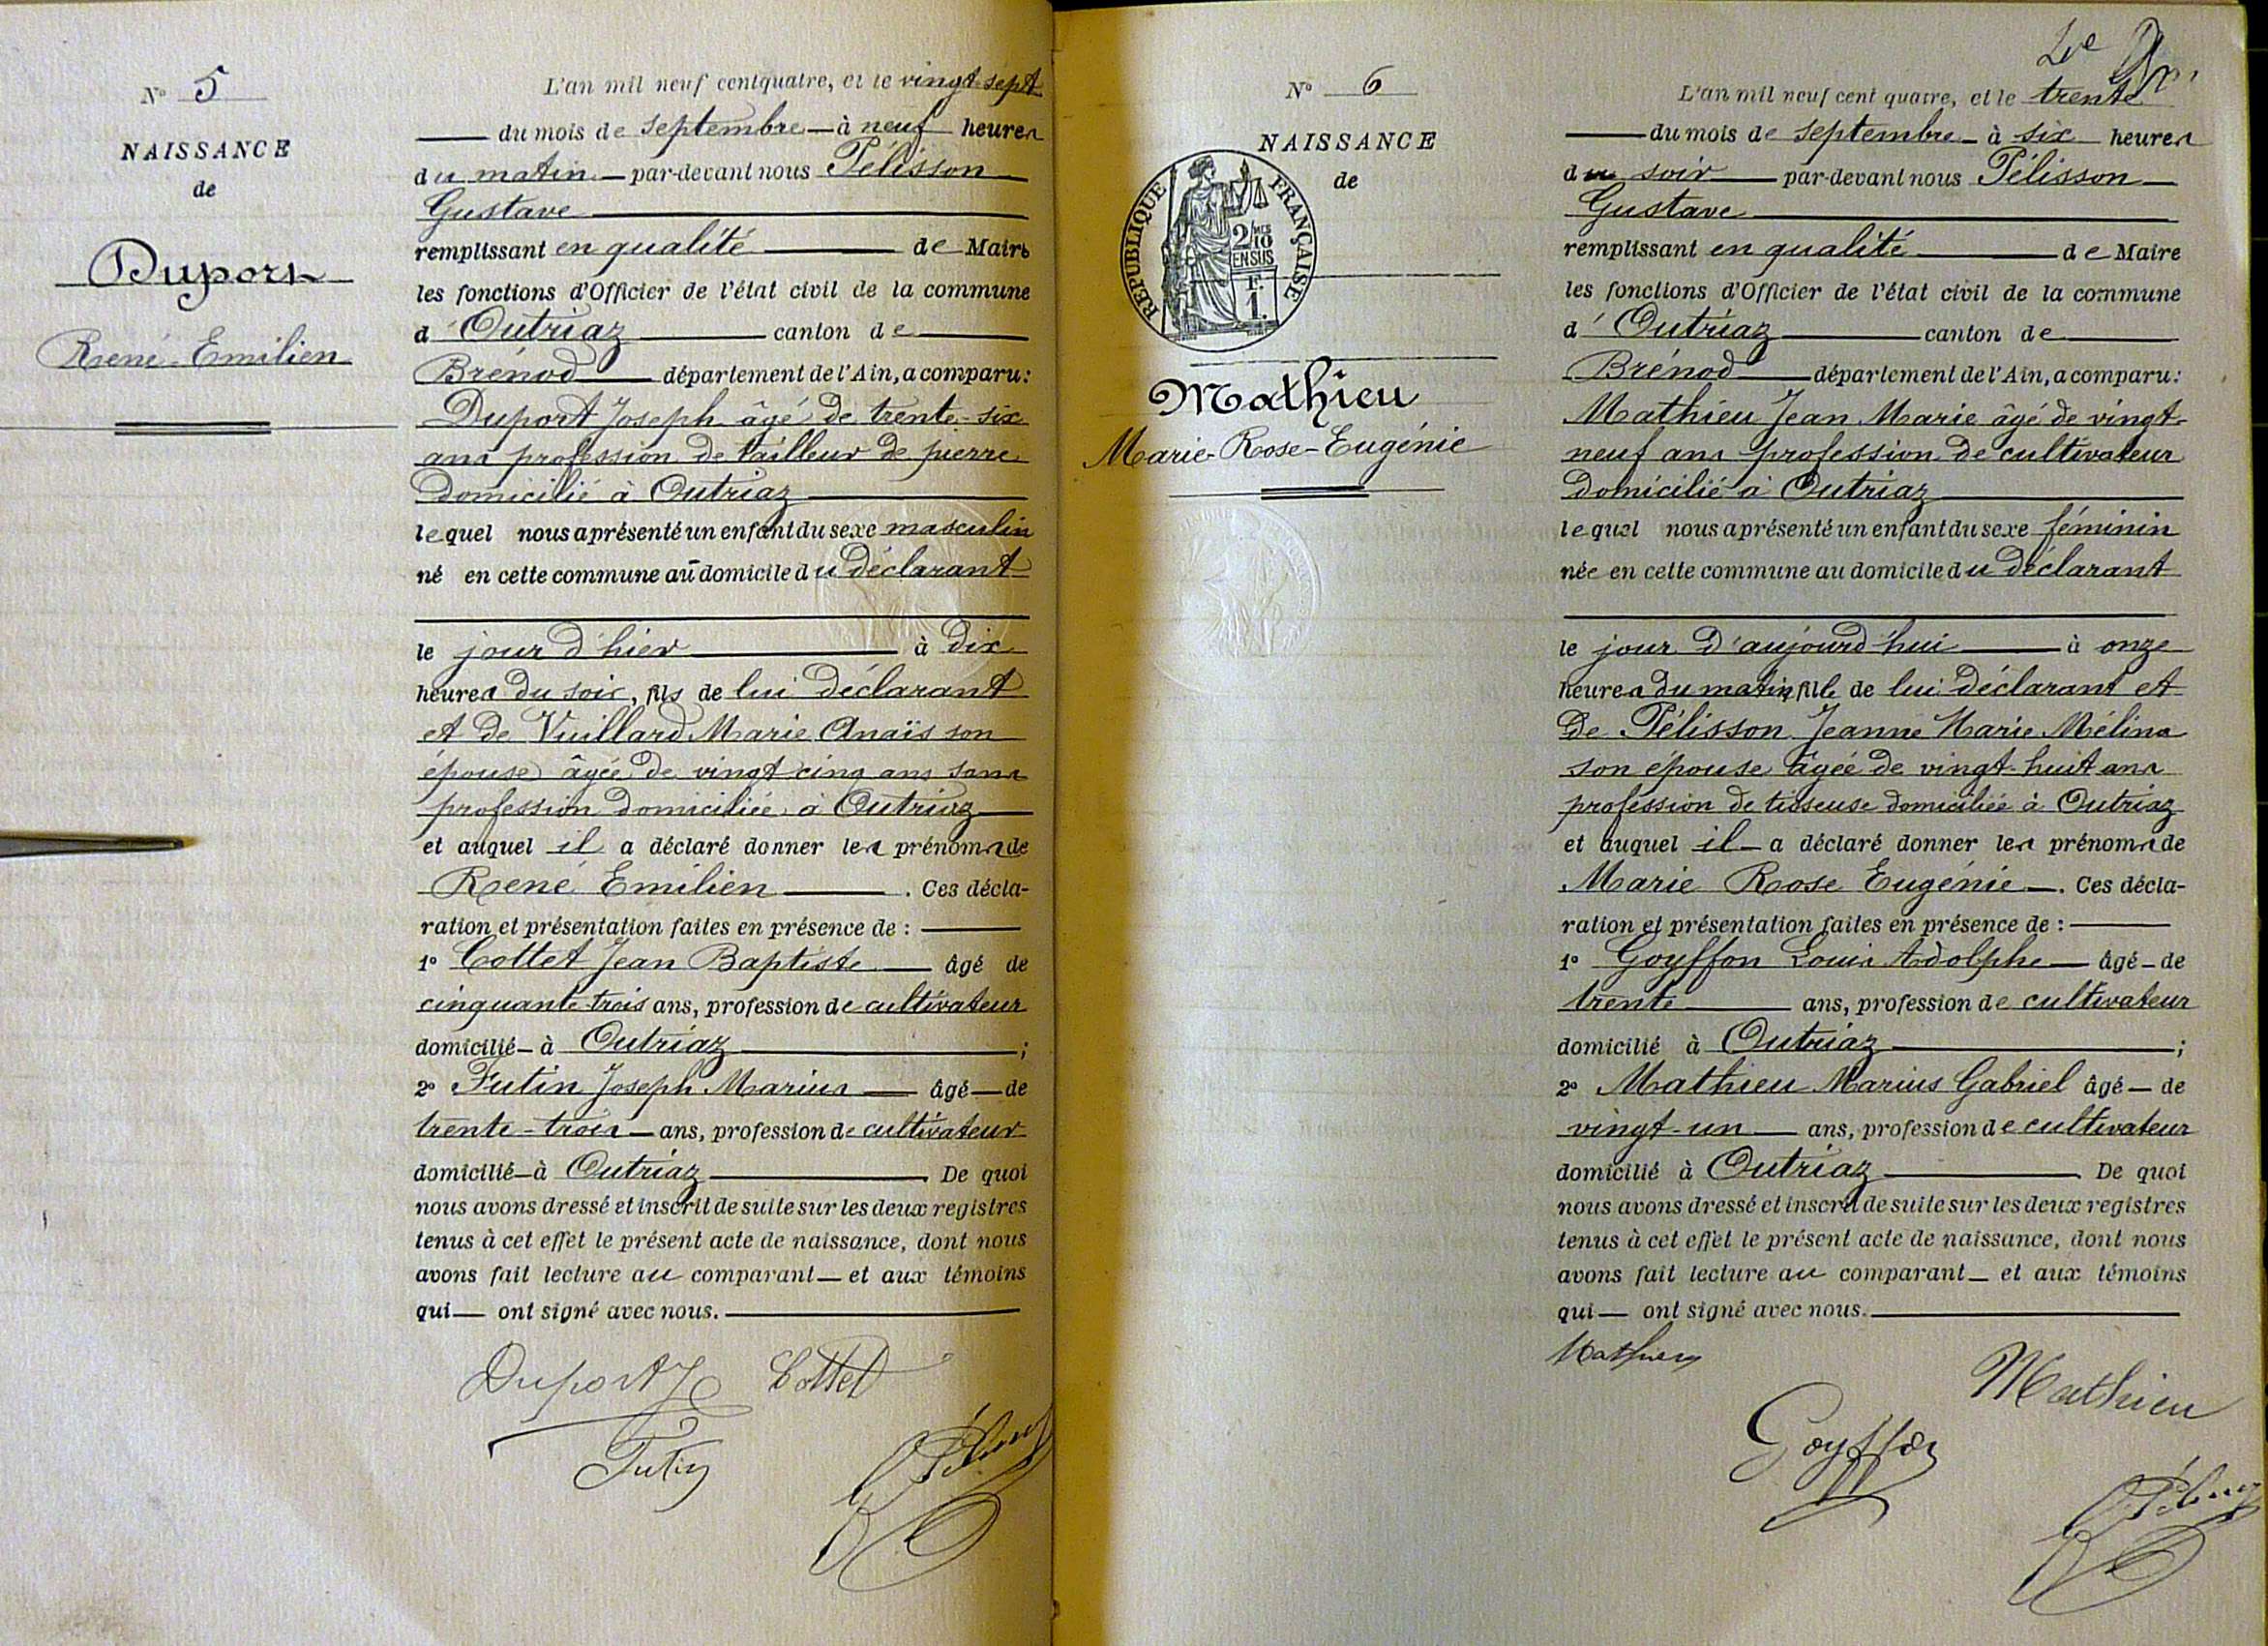 N° 5
NAISSANCE
de
Duport
René-Emilien
L'an mil neuf cent quatre, et le vingt-sept
du mois de septembre à neuf heures
du matin par-devant nous Pélisson
Gustave
remplissant en qualité de Maire
les fonctions d'Officier de l'état civil de la commune
d'Outriaz canton de
Brénod département de l'Ain, a comparu:
Duport Joseph âgé de trente-six
ans profession de tailleur de pierre
domicilié à Outriaz
lequel nous a présenté un enfant du sexe masculin
né en cette commune au domicile du déclarant
le jour d'hier à dix
heures du soir, fils de lui déclarant
et de Vuillard Marie Anaïs son
épouse âgée de vingt cinq ans sans
profession domiciliée à Outriaz
et auquel il a déclaré donner les prénoms de
René Emilien. Ces décla-
ration et présentation faites en présence de :
1° Cottet Jean Baptiste âgé de
cinquante-trois ans, profession de cultivateur
domicilié à Outriaz ;
2° Futin Joseph Marius âgé de
trente-trois ans, profession de cultivateur
domicilié à Outriaz. De quoi
nous avons dressé et inscrit de suite sur les deux registres
tenus à cet effet le présent acte de naissance, dont nous
avons fait lecture au comparant et aux témoins
qui ont signé avec nous.
Duport J Cottet
Futin
Pélisson
N° 6
NAISSANCE
de
RÉPUBLIQUE FRANÇAISE
2/10 MES
EN SUS
F.
1.
Mathieu
Marie-Rose-Eugénie
L'an mil neuf cent quatre, et le trente
du mois de septembre à six heures
du soir par-devant nous Pélisson
Gustave
remplissant en qualité de Maire
les fonctions d'Officier de l'état civil de la commune
d'Outriaz canton de
Brénod département de l'Ain, a comparu:
Mathieu Jean Marie âgé de vingt-
neuf ans profession de cultivateur
domicilié à Outriaz
lequel nous a présenté un enfant du sexe féminin
née en cette commune au domicile du déclarant
le jour d'aujourd'hui à onze
heures du matin, fille de lui déclarant et
de Pélisson Jeanne Marie Mélina
son épouse âgée de vingt-huit ans
profession de tisseuse domiciliée à Outriaz
et auquel il a déclaré donner les prénoms de
Marie Rose Eugénie. Ces décla-
ration et présentation faites en présence de :
1° Goyffon Louis Adolphe âgé de
trente ans, profession de cultivateur
domicilié à Outriaz ;
2° Mathieu Marius Gabriel âgé de
vingt-un ans, profession de cultivateur
domicilié à Outriaz. De quoi
nous avons dressé et inscrit de suite sur les deux registres
tenus à cet effet le présent acte de naissance, dont nous
avons fait lecture au comparant et aux témoins
qui ont signé avec nous.
Mathieu
Mathieu
Goyffon
Pélisson